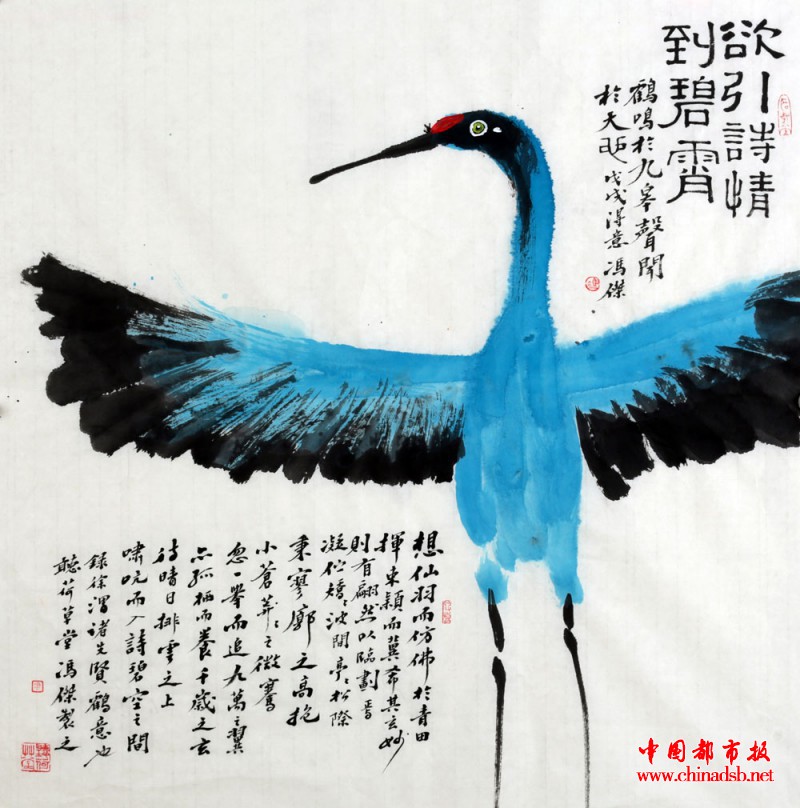 欲引詩情
到碧霄
鶴鳴於九皋聲聞
於天 戊戌得意 馮傑
想仙羽而仿佛於青田
揮束穎而冀希其玄妙
則有翩然以臨劃焉
凝佇矯〻波間亭〻松際
秉寥廓之高抱
小蒼莽〻之微騫
忽一舉而追九萬之翼
亦孤栖而養千歲之玄
待晴日排雲之上
嘯吭而入詩碧空之間
錄徐渭諸先賢鶴意也
聽荷草堂馮傑製之
中国都市报
www.chinadsb.net